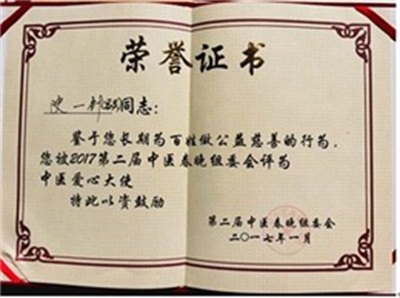 荣誉证书
史一 同志：
鉴于您长期为百姓做公益慈善的行为，
您被2017第二届中医春晚组委会评为
中医爱心大使
特此以资鼓励
第二届中医春晚组委会
二〇一七年一月